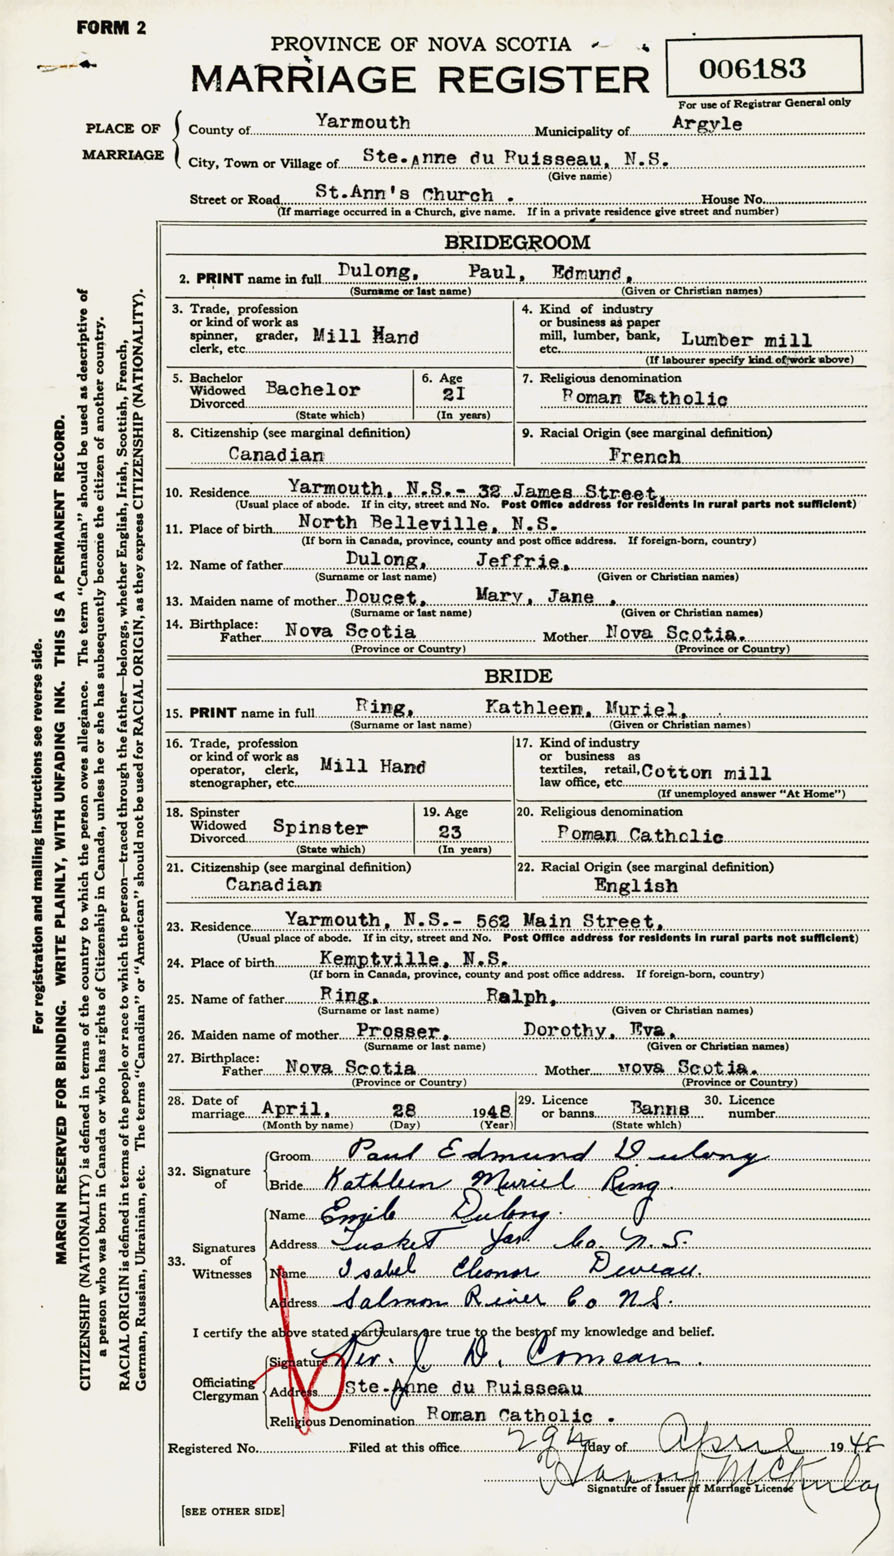 FORM 2
PROVINCE OF NOVA SCOTIA
MARRIAGE REGISTER
006183
For use of Registrar General only
PLACE OF MARRIAGE
County of Yarmouth Municipality of Argyle
City, Town or Village of Ste.Anne du Ruisseau, N.S.
(Give name)
Street or Road St.Ann's Church . House No.
(If marriage occurred in a Church, give name. If in a private residence give street and number)
BRIDEGROOM
2. PRINT name in full Dulong, Paul, Edmund,
(Surname or last name) (Given or Christian names)
3. Trade, profession
or kind of work as
spinner, grader, Mill Hand
clerk, etc.
4. Kind of industry
or business as paper
mill, lumber, bank, Lumber mill
etc.
(If labourer specify kind of work above)
5. Bachelor
Widowed Bachelor
Divorced
(State which)
6. Age
21
(In years)
7. Religious denomination
Roman Catholic
8. Citizenship (see marginal definition)
Canadian
9. Racial Origin (see marginal definition)
French
10. Residence Yarmouth, N.S.- 32 James Street,
(Usual place of abode. If in city, street and No. Post Office address for residents in rural parts not sufficient)
11. Place of birth North Belleville, N.S.
(If born in Canada, province, county and post office address. If foreign-born, country)
12. Name of father Dulong, Jeffrie,
(Surname or last name) (Given or Christian names)
13. Maiden name of mother Doucet, Mary, Jane ,
(Surname or last name) (Given or Christian names)
14. Birthplace:
Father Nova Scotia Mother Nova Scotia.
(Province or Country) (Province or Country)
BRIDE
15. PRINT name in full Ring, Kathleen, Muriel,
(Surname or last name) (Given or Christian names)
16. Trade, profession
or kind of work as
operator, clerk, Mill Hand
stenographer, etc.
17. Kind of industry
or business as
textiles, retail, Cotton mill
law office, etc.
(If unemployed answer "At Home")
18. Spinster
Widowed Spinster
Divorced
(State which)
19. Age
23
(In years)
20. Religious denomination
Roman Catholic
21. Citizenship (see marginal definition)
Canadian
22. Racial Origin (see marginal definition)
English
23. Residence Yarmouth, N.S.- 562 Main Street,
(Usual place of abode. If in city, street and No. Post Office address for residents in rural parts not sufficient)
24. Place of birth Kemptville, N.S.
(If born in Canada, province, county and post office address. If foreign-born, country)
25. Name of father Ring, Ralph,
(Surname or last name) (Given or Christian names)
26. Maiden name of mother Prosser, Dorothy, Eva,
(Surname or last name) (Given or Christian names)
27. Birthplace:
Father Nova Scotia Mother Nova Scotia.
(Province or Country) (Province or Country)
28. Date of
marriage April, 28 1948
(Month by name) (Day) (Year)
29. Licence
or banns Banns
(State which)
30. Licence
number
32. Signature of
Groom Paul Edmund Dulong
Bride Kathleen Muriel Ring
33. Signatures of Witnesses
Name Emile Dulong.
Address Tusket Yar. Co. N.S.
Name Isabel Eleonor Deveau.
Address Salmon River Co N.S.
I certify the above stated particulars are true to the best of my knowledge and belief.
Officiating Clergyman
Signature Rev. J. D. Comeau.
Address Ste.Anne du Ruisseau
Religious Denomination Roman Catholic .
Registered No. Filed at this office 29th day of April 1948
Harry McKinlay
Signature of Issuer of Marriage Licence
[SEE OTHER SIDE]
For registration and mailing instructions see reverse side.
MARGIN RESERVED FOR BINDING. WRITE PLAINLY, WITH UNFADING INK. THIS IS A PERMANENT RECORD.
CITIZENSHIP (NATIONALITY) is defined in terms of the country to which the person owes allegiance. The term "Canadian" should be used as descriptive of
a person who was born in Canada or who has rights of Citizenship in Canada, unless he or she has subsequently become the citizen of another country.
RACIAL ORIGIN is defined in terms of the people or race to which the person—traced through the father—belongs, whether English, Irish, Scottish, French,
German, Russian, Ukrainian, etc. The terms "Canadian" or "American" should not be used for RACIAL ORIGIN, as they express CITIZENSHIP (NATIONALITY).